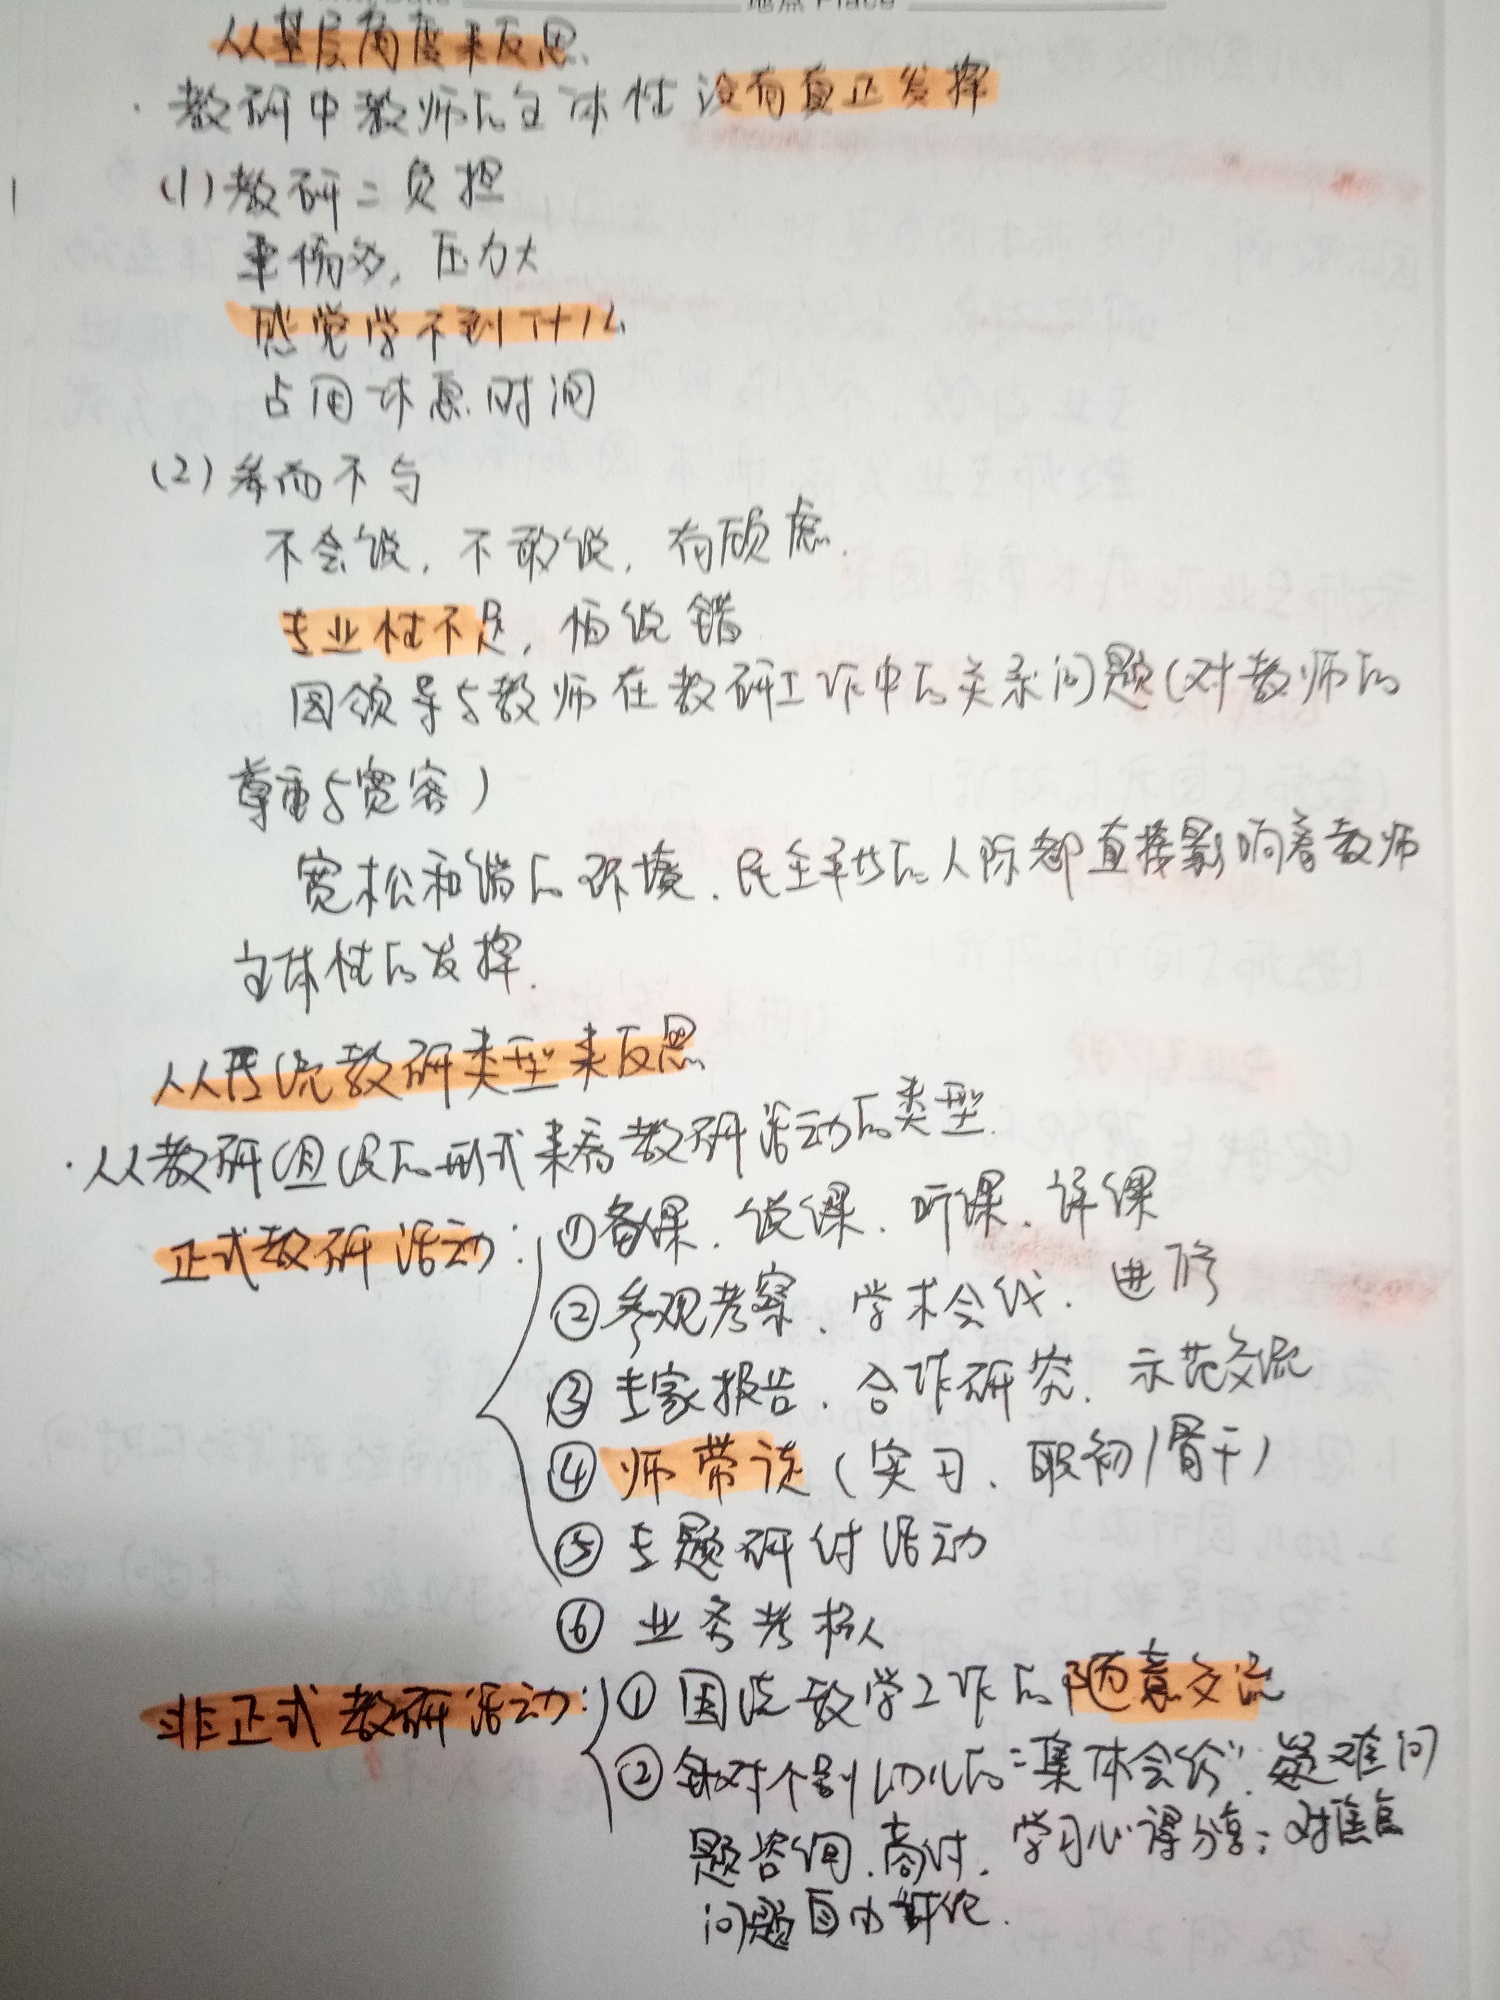 地点 Place
从基层角度来反思
·教研中教师的主体性没有真正发挥
(1)教研=负担
事情多,压力大
感觉学不到什么
占用休息时间
(2)参而不与
不会说,不敢说,有顾虑.
专业性不足,怕说错
因领导与教师在教研工作中的关系问题(对教师的
尊重与宽容)
宽松和谐的环境、民主平等的人际都直接影响着教师
主体性的发挥.
从传统教研类型来反思
·从教研组设的形式来看教研活动的类型.
正式教研活动:①备课、说课、听课、评课
②参观考察、学术会议、进修
③专家报告、合作研究、示范交流
④师带徒(实习、职初/骨干)
⑤专题研讨活动
⑥业务考核
非正式教研活动:①围绕教学工作的随意交流
②针对个别幼儿的"集体会诊";疑难问
题咨询、商讨、学习心得分享;对焦点
问题自由评论.